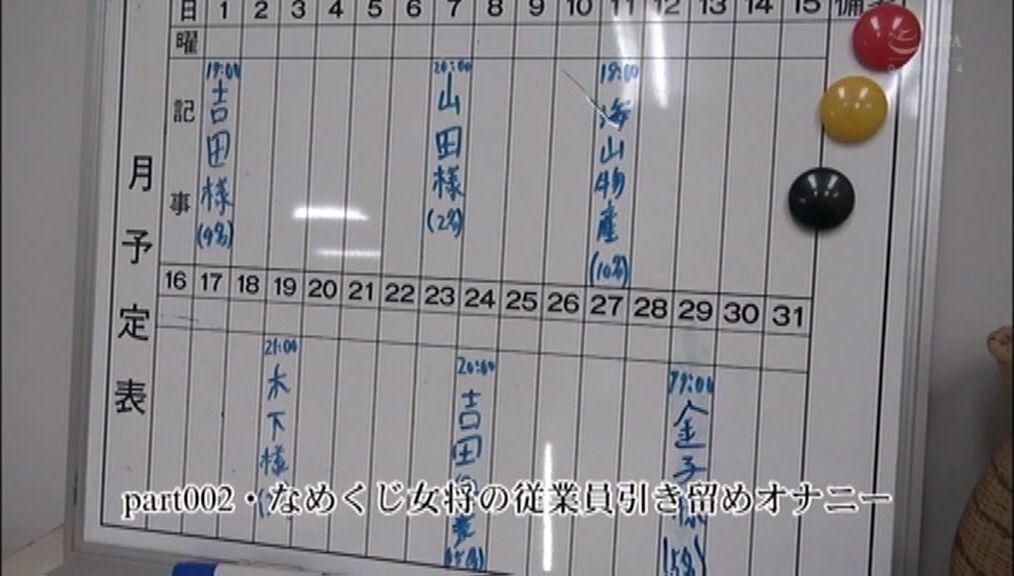 日 1 2 3 4 5 6 7 8 9 10 11 12 13 14 15 備考
曜
記事
19:00 吉田様(4名)
20:00 山田様(2名)
19:00 海山物産(10名)
月予定表
16 17 18 19 20 21 22 23 24 25 26 27 28 29 30 31
21:00 木下様
20:00 吉田
19:00 金子様(5名)
part002・なめくじ女将の従業員引き留めオナニー